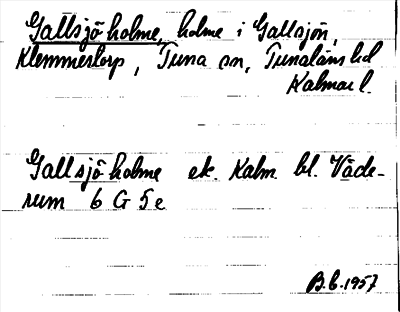 Gallsjö holme, holme i Gallsjön,
Klemmestorp, Tuna sn, Tunaläns hd
Kalmar l.
Gallsjö holme ek. Kalm. bl. Väde-
rum 6 G 5 e
B.C. 1957